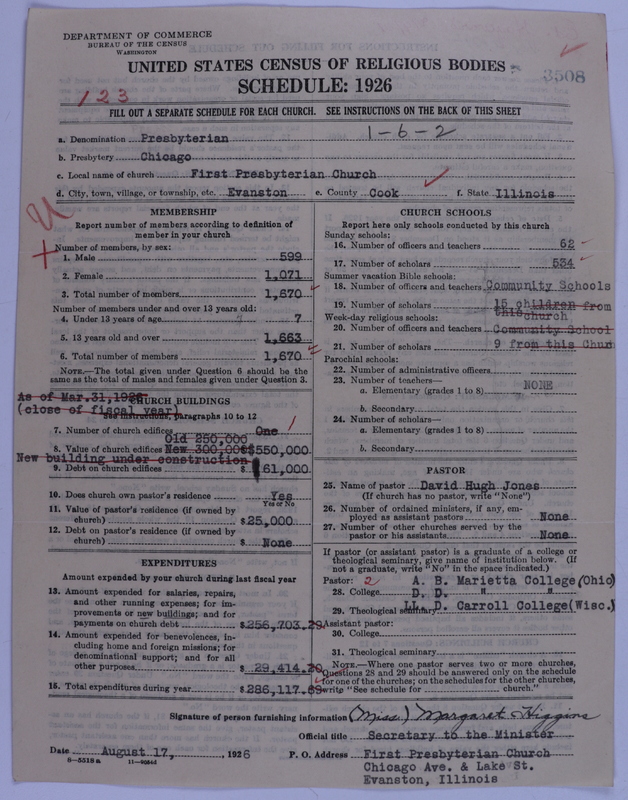 DEPARTMENT OF COMMERCE
BUREAU OF THE CENSUS
WASHINGTON
UNITED STATES CENSUS OF RELIGIOUS BODIES
3508
SCHEDULE: 1926
123
FILL OUT A SEPARATE SCHEDULE FOR EACH CHURCH. SEE INSTRUCTIONS ON THE BACK OF THIS SHEET
1-6-2
a. Denomination Presbyterian
b. Presbytery Chicago
c. Local name of church First Presbyterian Church
d. City, town, village, or township, etc. Evanston e. County Cook f. State Illinois
MEMBERSHIP
Report number of members according to definition of
member in your church
Number of members, by sex:
1. Male 599
2. Female 1,071
3. Total number of members 1,670
Number of members under and over 13 years old:
4. Under 13 years of age 7
5. 13 years old and over 1,663
6. Total number of members 1,670
NOTE.—The total given under Question 6 should be the
same as the total of males and females given under Question 3.
As of Mar.31,1926
CHURCH BUILDINGS
(close of fiscal year)
See instructions, paragraphs 10 to 12
7. Number of church edifices One 1
Old 250,000
8. Value of church edifices New 300,000 $550,000
New building under construction
9. Debt on church edifices $ 61,000
10. Does church own pastor's residence Yes
Yes or No
11. Value of pastor's residence (if owned by
church) $25,000
12. Debt on pastor's residence (if owned by
church) $ None
EXPENDITURES
Amount expended by your church during last fiscal year
13. Amount expended for salaries, repairs,
and other running expenses; for im-
provements or new buildings; and for
payments on church debt $256,703.29
14. Amount expended for benevolences, in-
cluding home and foreign missions; for
denominational support; and for all
other purposes $ 29,414.20
15. Total expenditures during year $286,117.69
CHURCH SCHOOLS
Report here only schools conducted by this church
Sunday schools:
16. Number of officers and teachers 52
17. Number of scholars 534
Summer vacation Bible schools:
18. Number of officers and teachers Community Schools
19. Number of scholars 15 children from
this church
Week-day religious schools:
20. Number of officers and teachers Community School
21. Number of scholars 9 from this Chur
Parochial schools:
22. Number of administrative officers
23. Number of teachers— NONE
a. Elementary (grades 1 to 8)
b. Secondary
24. Number of scholars—
a. Elementary (grades 1 to 8)
b. Secondary
PASTOR
25. Name of pastor David Hugh Jones
(If church has no pastor, write "None")
26. Number of ordained ministers, if any, em-
ployed as assistant pastors None
27. Number of other churches served by the
pastor or his assistants None
If pastor (or assistant pastor) is a graduate of a college or
theological seminary, give name of institution below. (If
not a graduate, write "No" in the space indicated.)
Pastor: 2 A. B. Marietta College(Ohio)
28. College D. D. " "
29. Theological seminary LL. D. Carroll College(Wisc.)
Assistant pastor:
30. College
31. Theological seminary
NOTE.—Where one pastor serves two or more churches,
Questions 28 and 29 should be answered only on the schedule
for one of the churches; on the schedules for the other churches,
write "See schedule for church."
Signature of person furnishing information (Miss.) Margaret Higgins
Official title Secretary to the Minister
Date August 17, 1926 P. O. Address First Presbyterian Church
8—5518a 11—9064d
Chicago Ave. & Lake St.
Evanston, Illinois